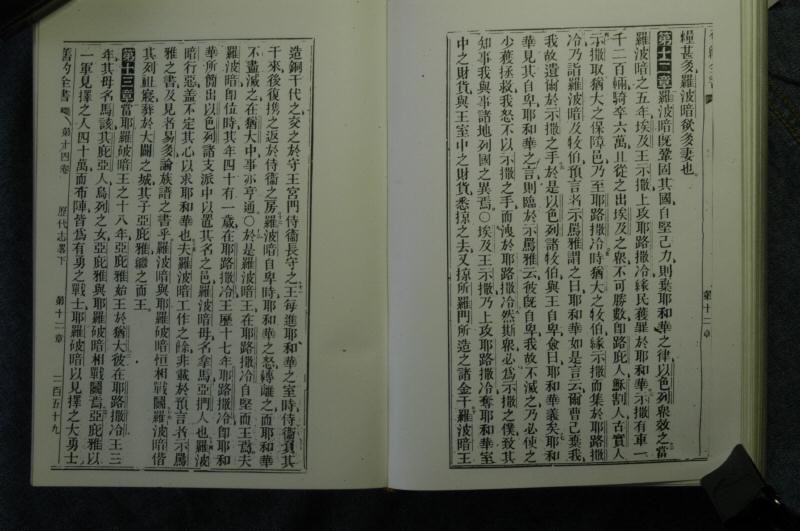 糧甚多羅波暗欲多妻也
第十二章羅波暗旣鞏固其國自堅己力則棄耶和華之律以色列衆效之當
羅波暗之五年埃及王示撒上攻耶路撒冷緣民獲罪於耶和華示撒有車一
千二百輛騎卒六萬且從之出埃及之衆不可勝數卽路庇人穌割人古實人
示撒取猶大之保障邑乃至耶路撒冷時猶大之牧伯緣示撒而集於耶路撒
冷乃詣羅波暗及牧伯預言者示馬雅謂之曰耶和華如是言云爾曹已棄我
我故遺爾於示撒之手於是以色列諸牧伯與王自卑僉曰耶和華義矣耶和
華見其自卑耶和華之言則臨於示馬雅云彼旣自卑我故不滅之乃必使之
少獲拯救我怒不以示撒之手而洩於耶路撒冷然斯衆必爲示撒之僕致其
知事我與事諸地列國之異焉○埃及王示撒乃上攻耶路撒冷奪耶和華室
中之財貨與王室中之財貨悉掠之去又掠所羅門所造之諸金干羅波暗王
造銅干代之交之於守王宮門侍衞長守之王每進耶和華之室時侍衞負其
干來後復攜之返於侍衞之房羅波暗自卑時耶和華之怒轉離之而耶和華
不盡滅之在猶大中事亦亨通○於是羅波暗王在耶路撒冷自堅而王焉夫
羅波暗卽位時其年四十有一歲在耶路撒冷王歷十七年耶路撒冷卽耶和
華所簡出以色列諸支派中以置其名之邑羅波暗母名拿馬亞捫人也羅波
暗行惡蓋不定其心以求耶和華也夫羅波暗工作之始終非載於預言者示馬
雅之書及見者易多論族譜之書乎羅波暗與耶羅破暗恒相戰鬬羅波暗偕
其列祖寢葬於大闢之城其子亞庇雅繼之而王
第十三章當耶羅破暗王之十八年亞庇雅始王於猶大彼在耶路撒冷王三
年其母名馬該其庇亞人烏列之女亞庇雅與耶羅破暗相戰鬬焉亞庇雅以
一軍見擇之人四十萬而布陣皆爲有勇之戰士耶羅破暗以見擇之大勇士
舊約全書 第十四卷 歷代志畧下 第十二章 二百五十九